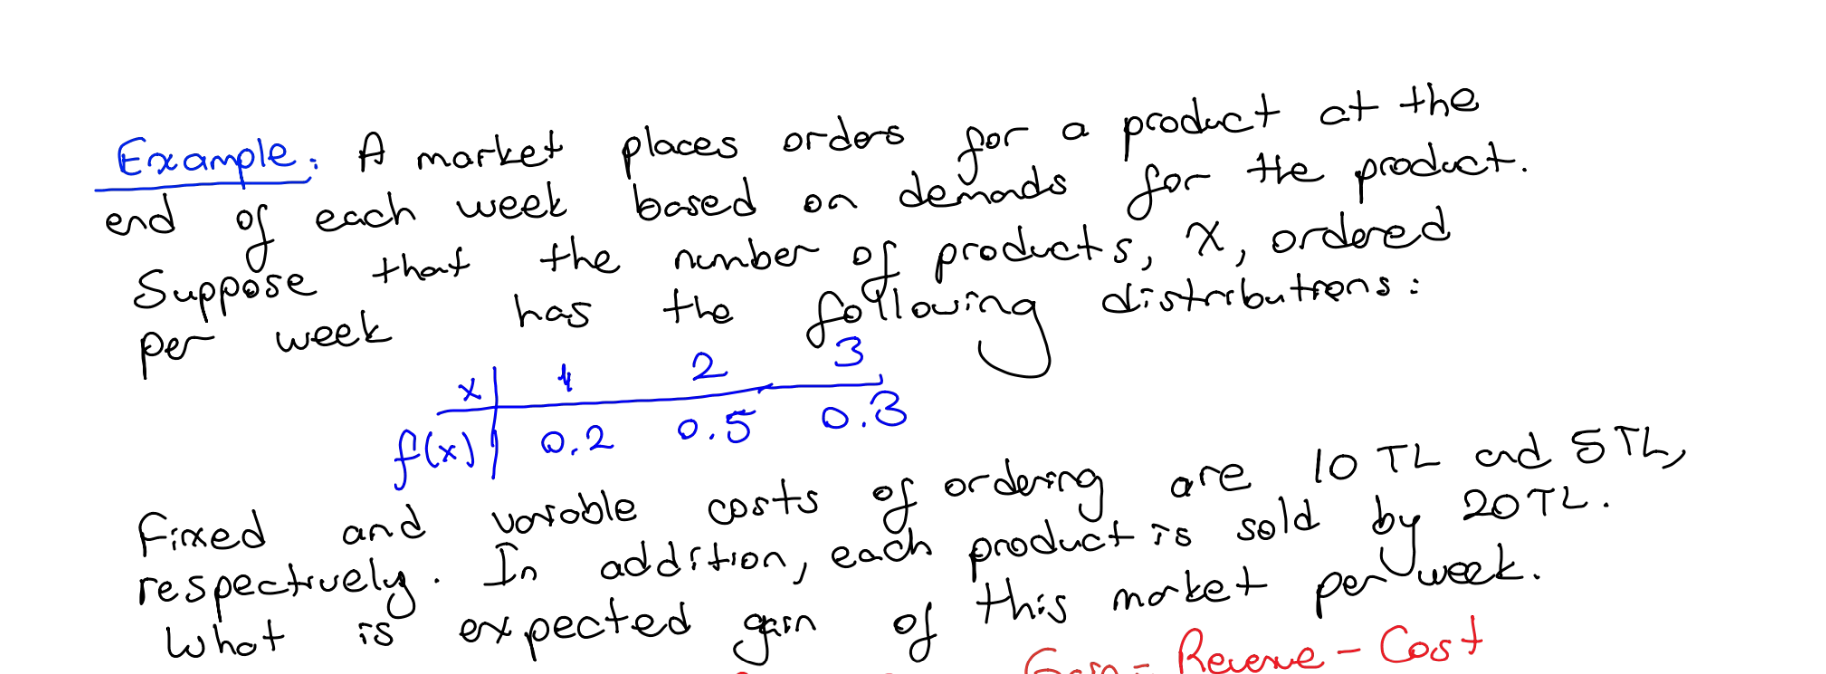 Example: A market places orders for a product at the
end of each week based on demands for the product.
Suppose that the number of products, X, ordered
per week has the following distributions:
x | 1 2 3
f(x) | 0.2 0.5 0.3
Fixed and variable costs of ordering are 10 TL and 5 TL,
respectively. In addition, each product is sold by 20 TL.
What is expected gain of this market per week.
Gain = Revenue - Cost